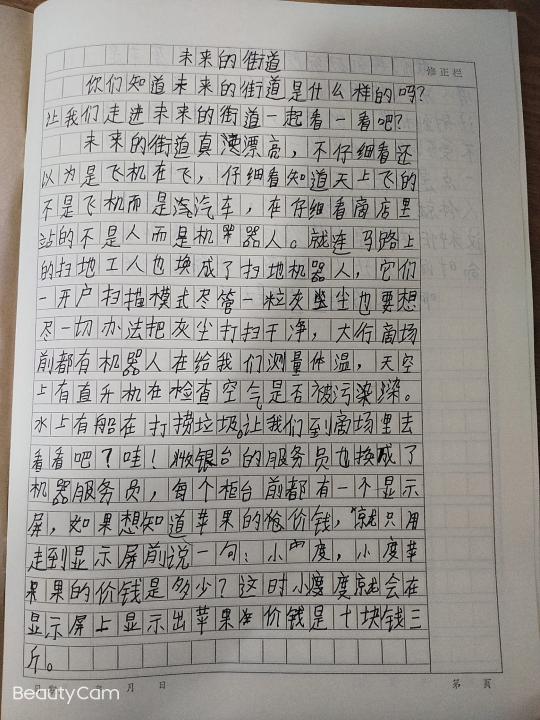 未来的街道
修正栏
你们知道未来的街道是什么样的吗?
让我们走进未来的街道一起看一看吧?
未来的街道真漂漂亮,不仔细看还
以为是飞机在飞,仔细看知道天上飞的
不是飞机而是汽汽车,在仔细看商店里
站的不是人而是机器人。就连马路上
的扫地工人也换成了扫地机器人,它们
一开户扫描模式尽管一粒灰尘也要想
尽一切办法把灰尘打扫干净,大街商场
前都有机器人在给我们测量体温,天空
上有直升机在检查空气是否被污染染。
水上有船在打捞垃圾。让我们到商场里去
看看吧?哇!收银台的服务员也换成了
机器服务员,每个柜台前都有一个显示
屏,如果想知道苹果的价钱,就只用
走到显示屏前说一句:小度,小度苹
果果的价钱是多少?这时小度度就会在
显示屏上显示出苹果价钱是十块钱三
斤。
月 日
第 页
BeautyCam